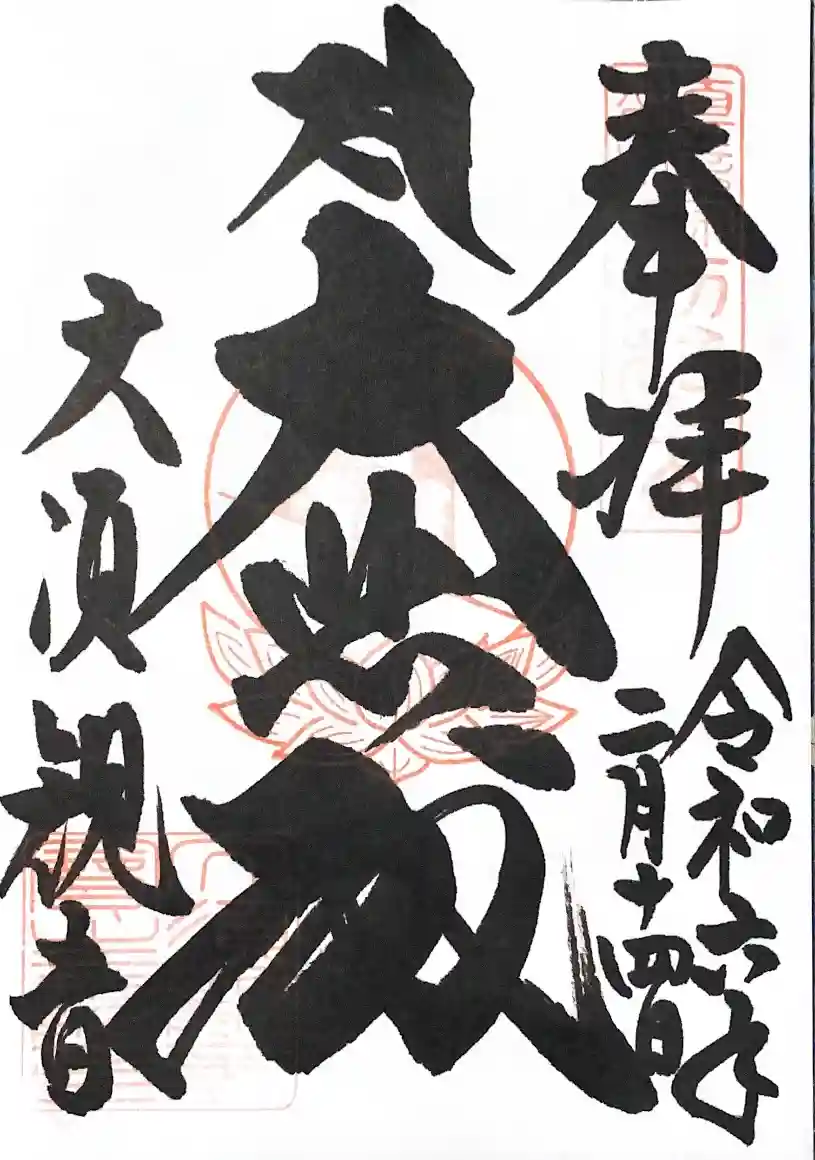 奉拝
令和六年
二月十四日
大悲殿
大須観音